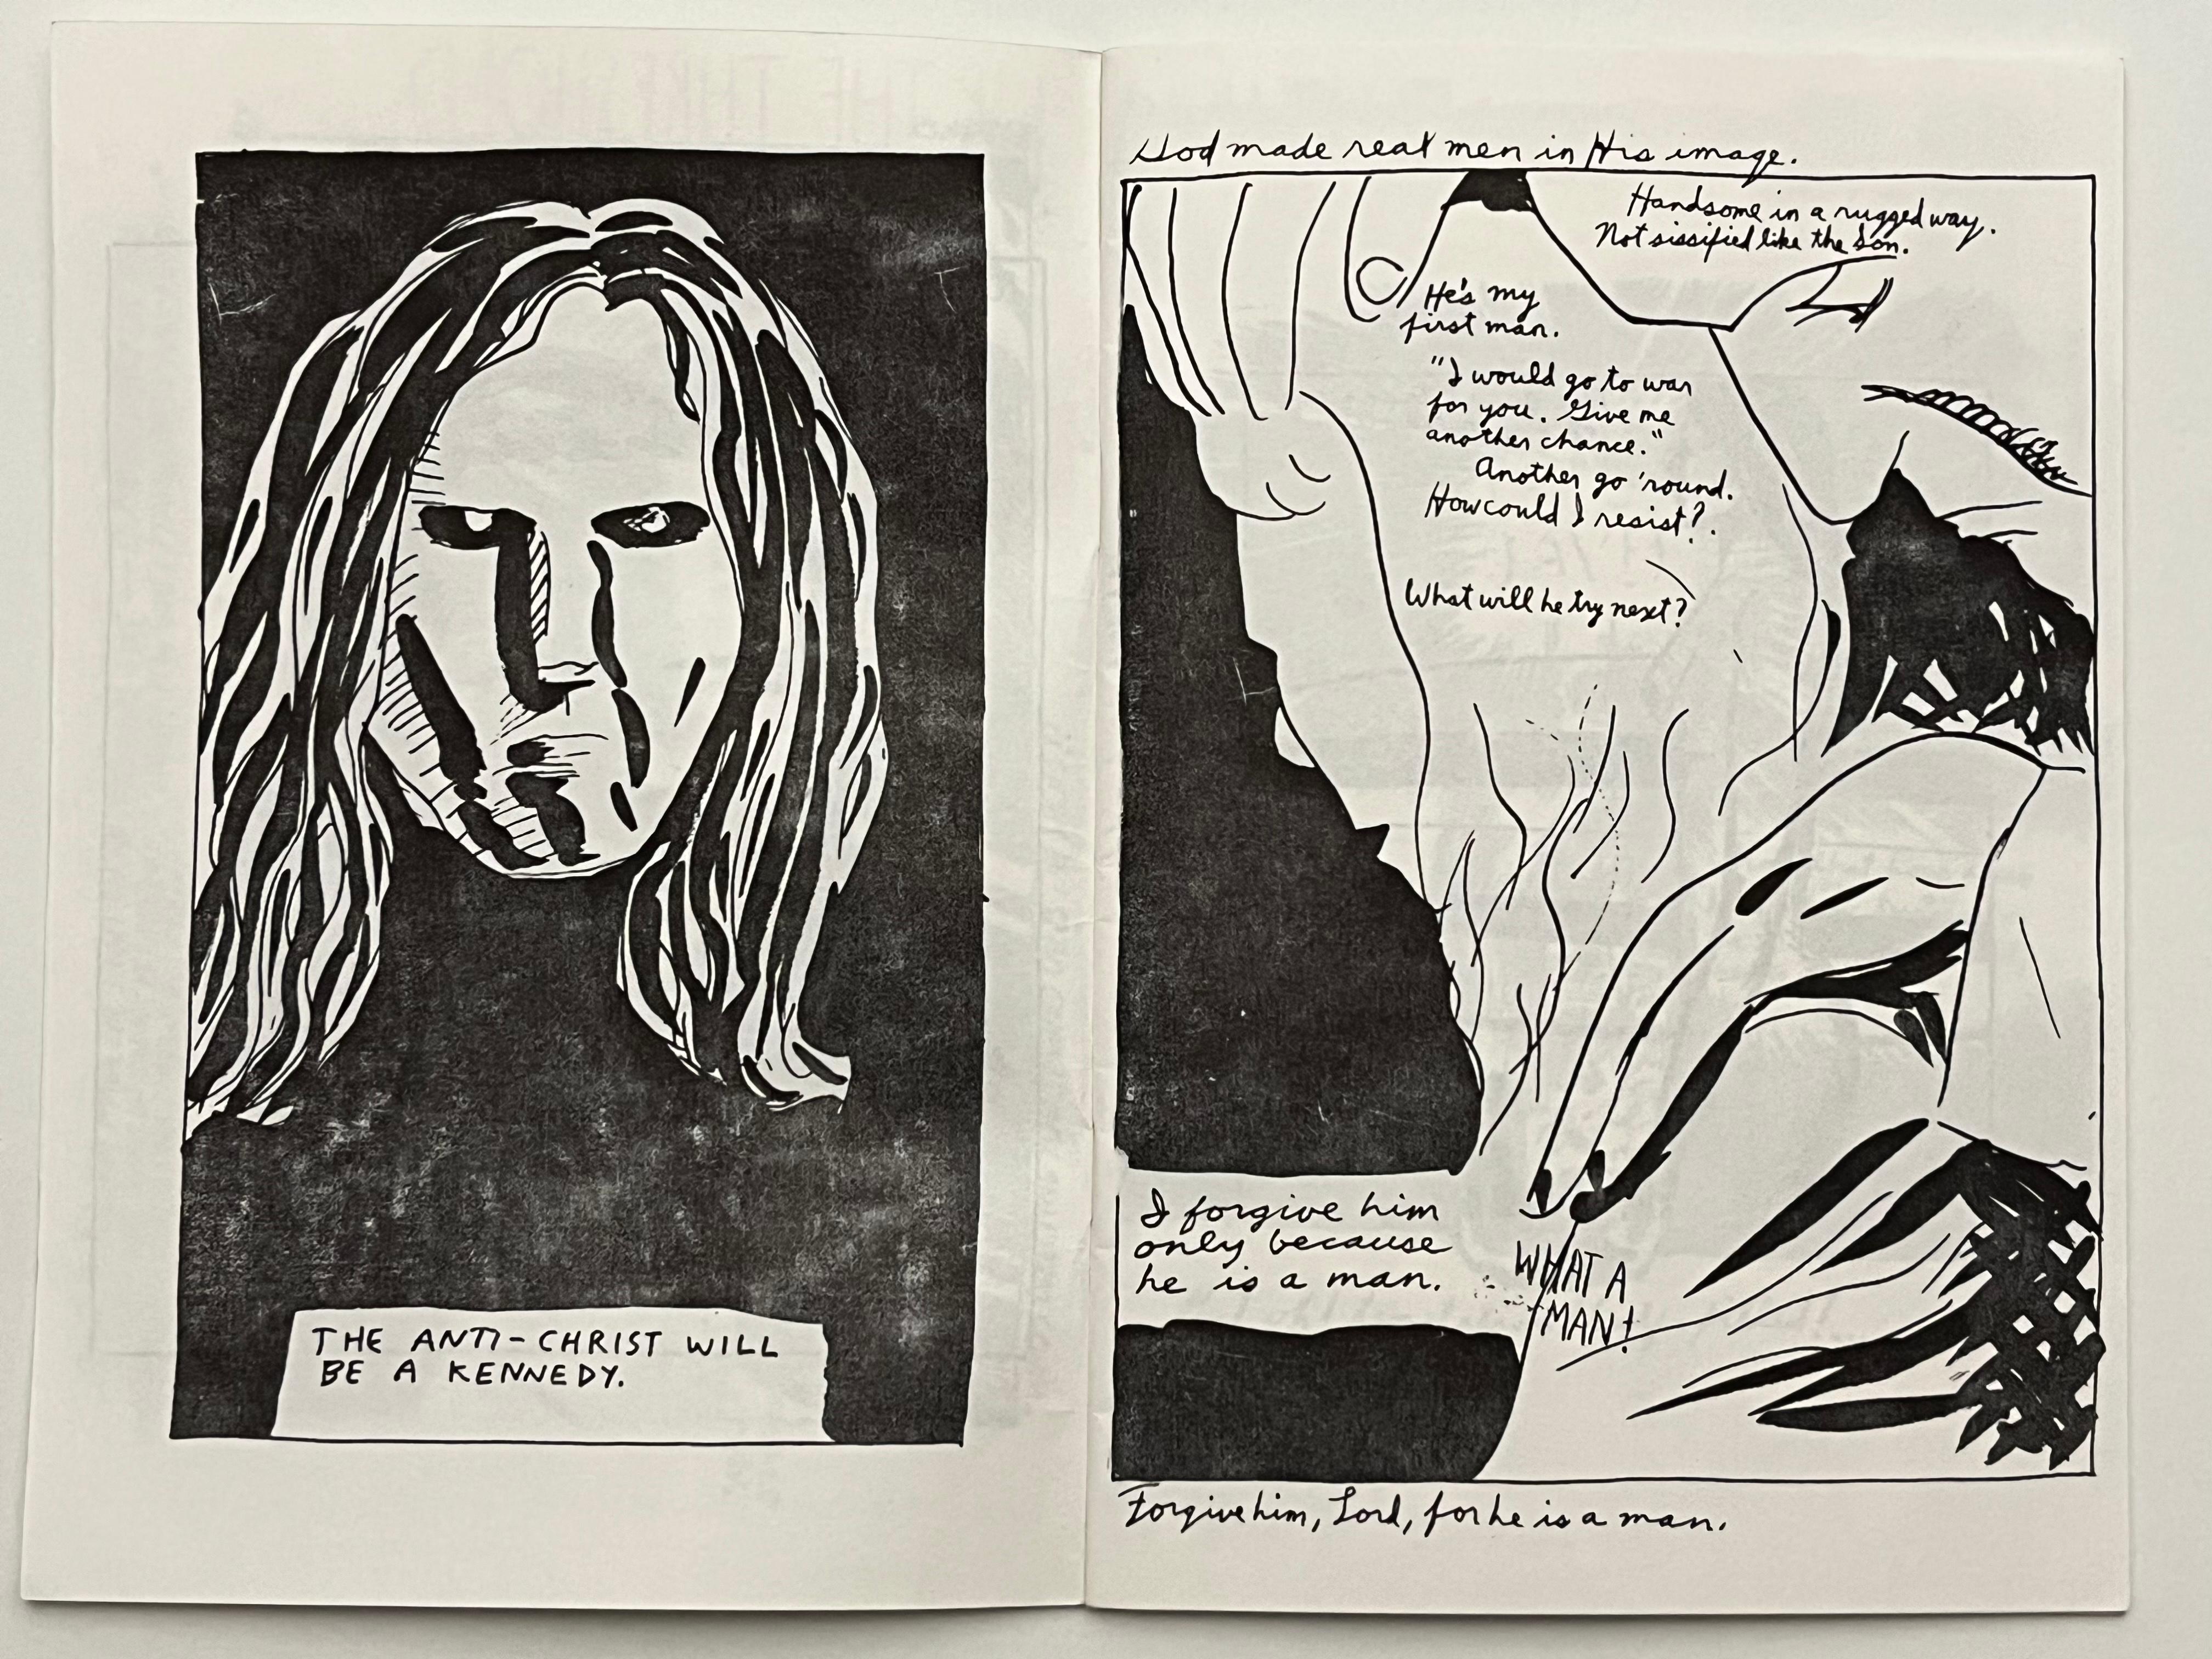 THE ANTI-CHRIST WILL
BE A KENNEDY.
God made real men in His image.
Handsome in a rugged way.
Not sissified like the Son.
He's my
first man.
"I would go to war
for you. Give me
another chance."
Another go 'round.
How could I resist?.
What will he try next?
I forgive him
only because
he is a man.
WHAT A
MAN!
Forgive him, Lord, for he is a man.